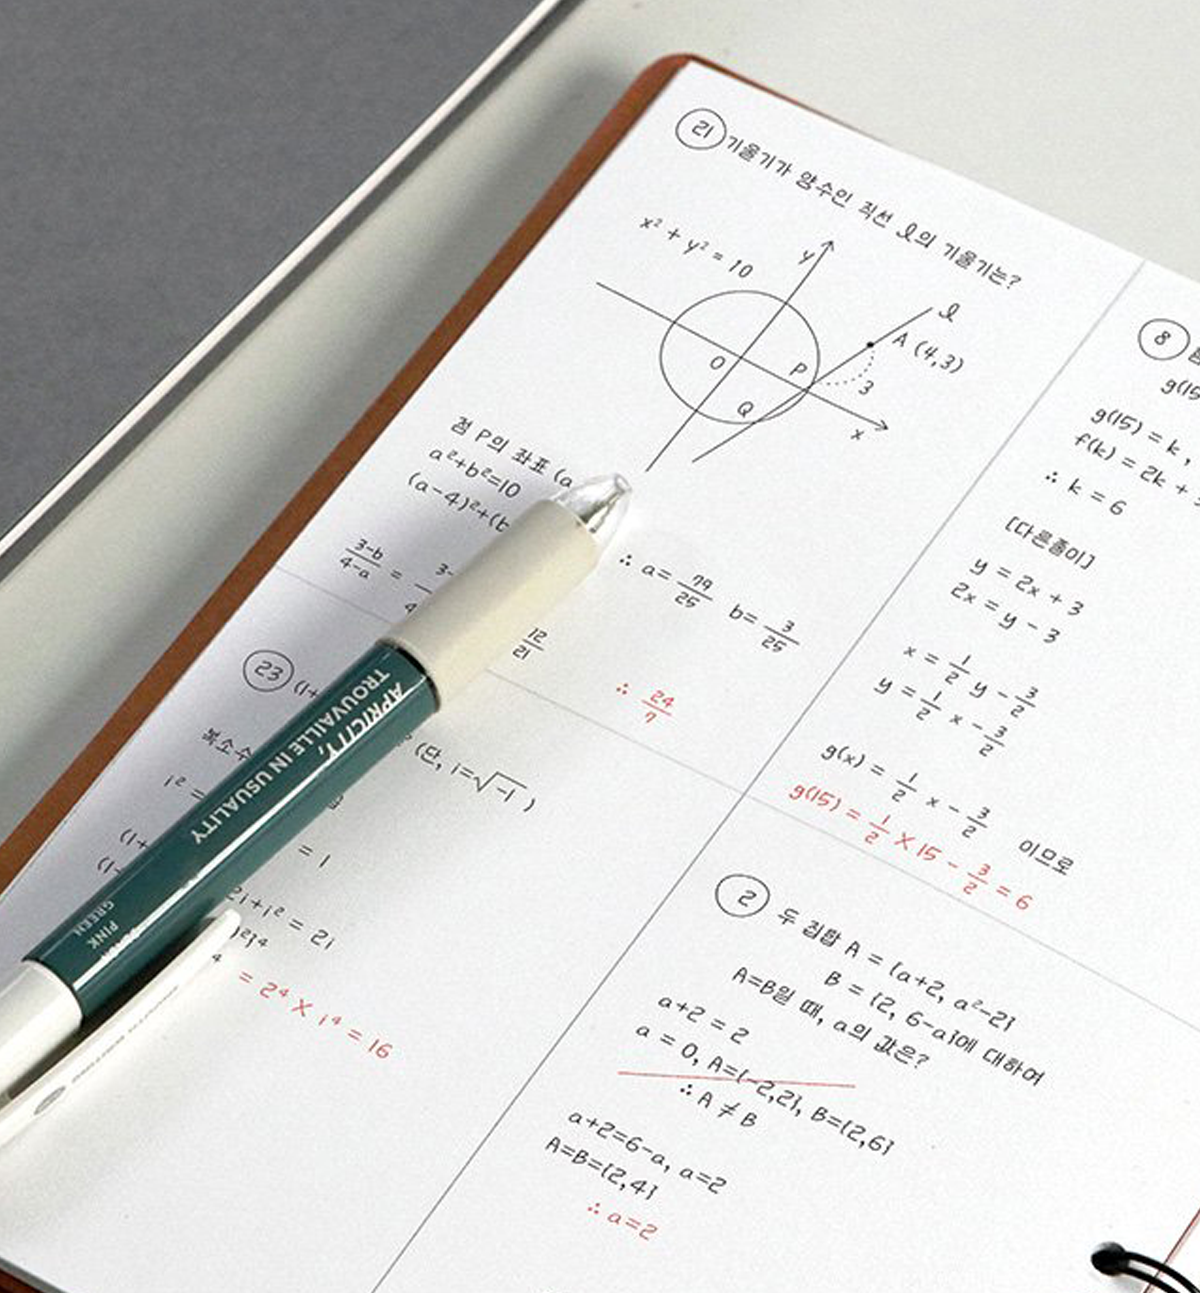 21 기울기가 양수인 직선 l의 기울기는?
x² + y² = 10
y
l
A (4,3)
O
P
3
Q
x
점 P의 좌표 (a
a²+b²=10
(a-4)²+(b
3-b/4-a = 3-
4
∴ a= 79/25 b= 3/25
12/21
∴ 24/7
23 (1+
² (단, i=√-1)
복소수
i² =
= 1
(1+
(1-
2i+i² = 2i
)²}⁴
⁴ = 2⁴ X i⁴ = 16
8
g(15
g(15) = k,
f(k) = 2k +
∴ k = 6
[다른풀이]
y = 2x + 3
2x = y - 3
x = 1/2 y - 3/2
y = 1/2 x - 3/2
g(x) = 1/2 x - 3/2 이므로
g(15) = 1/2 X 15 - 3/2 = 6
2 두 집합 A = {a+2, a²-2}
B = {2, 6-a}에 대하여
A=B일 때, a의 값은?
a+2 = 2
a = 0, A={-2,2}, B={2,6}
∴ A ≠ B
a+2=6-a, a=2
A=B={2,4}
∴ a=2
APRICITY,
TROUVAILLE IN USUALITY
PINK
GREEN